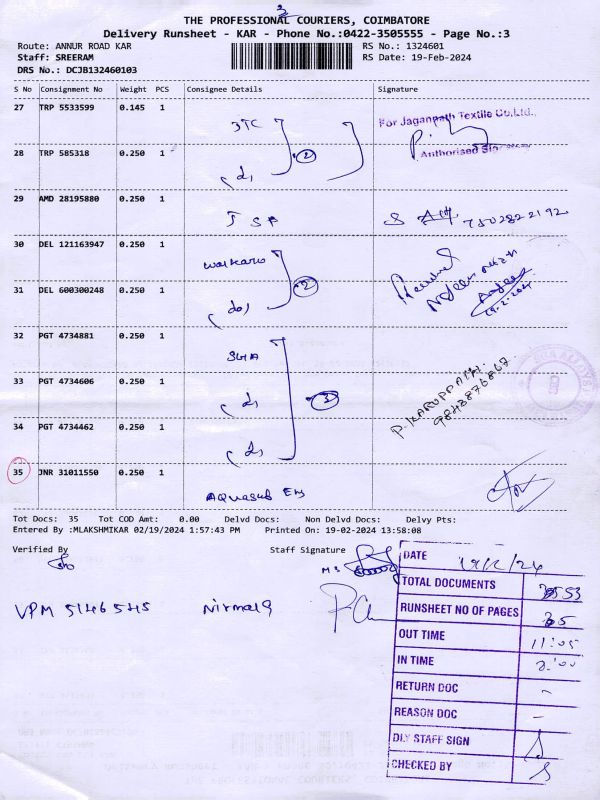 THE PROFESSIONAL COURIERS, COIMBATORE
Delivery Runsheet - KAR - Phone No.:0422-3505555 - Page No.:3
Route: ANNUR ROAD KAR RS No.: 1324601
Staff: SREERAM RS Date: 19-Feb-2024
DRS No.: DCJB132460103
S No Consignment No Weight PCS Consignee Details Signature
27 TRP 5533599 0.145 1 JTC For Jaganpath Textile Co.Ltd.,
28 TRP 585318 0.250 1 (do) 2 Authorised
29 AMD 28195880 0.250 1 JSP 7502822192
30 DEL 121163947 0.250 1 walkaroo Received
31 DEL 600300248 0.250 1 (do) 2 19.2.2024
32 PGT 4734881 0.250 1 SHA
33 PGT 4734606 0.250 1 (do) 3 P. KARUPPATH. 9843876867
34 PGT 4734462 0.250 1 (do)
35 JNR 31011550 0.250 1 Aquasub En
Tot Docs: 35 Tot COD Amt: 0.00 Delvd Docs: Non Delvd Docs: Delvy Pts:
Entered By :MLAKSHMIKAR 02/19/2024 1:57:43 PM Printed On: 19-02-2024 13:58:08
Verified By Staff Signature
VPM 5146545 Nirmala
DATE 19/2/24
TOTAL DOCUMENTS 53
RUNSHEET NO OF PAGES
OUT TIME 11:05
IN TIME 2:00
RETURN DOC -
REASON DOC -
DLY STAFF SIGN
CHECKED BY